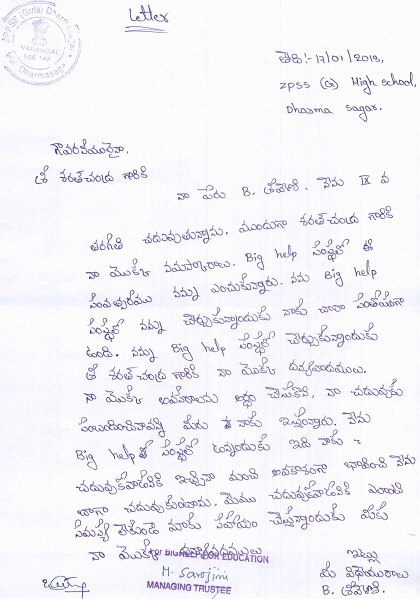 Letter
ZPPSS (Girls) Dharmasagar
WARANGAL
506 142
తేది:- 17/01/2018,
ZPSS (G) High school,
Dharma sagar.
గౌరవనీయులైన,
శ్రీ శరత్ చంద్ర గారికి
నా పేరు B. శ్రీవాణి. నేను IX వ
తరగతి చదువుతున్నాను. ముందుగా శరత్ చంద్ర గారికి
నా యొక్క నమస్కారాలు. Big help సంస్థలో ఈ
సంవత్సరము నన్ను ఎంచుకున్నారు. నను Big help
సంస్థలో నన్ను చేర్చుకున్నందుకు నాకు చాలా సంతోషంగా
ఉంది. నన్ను Big help సంస్థలో చేర్చుకున్నందుకు
శ్రీ శరత్ చంద్ర గారికి నా యొక్క ధన్యవాదములు.
నా యొక్క అవసరాలను అర్థం చేసుకొని, నా చదువుకు
సంబంధించినవన్ని మీరు నాకు ఇచ్చినారు. నేను
Big help సంస్థలో ఉన్నందుకు ఇది నాకు
చదువుకోవడానికి ఇచ్చిన మంచి అవకాశంగా భావించి నేను
బాగా చదువుకుంటాను. మేము చదువుకోవడానికి ఎలాంటి
సమస్య లేకుండా మాకు సహాయం చేస్తున్నందుకు మీకు
నా యొక్క ధన్యవాదములు
For BIGHELP FOR EDUCATION
M. Sarojini
MANAGING TRUSTEE
ఇట్లు
మీ విధేయురాలు
B. శ్రీవాణి.